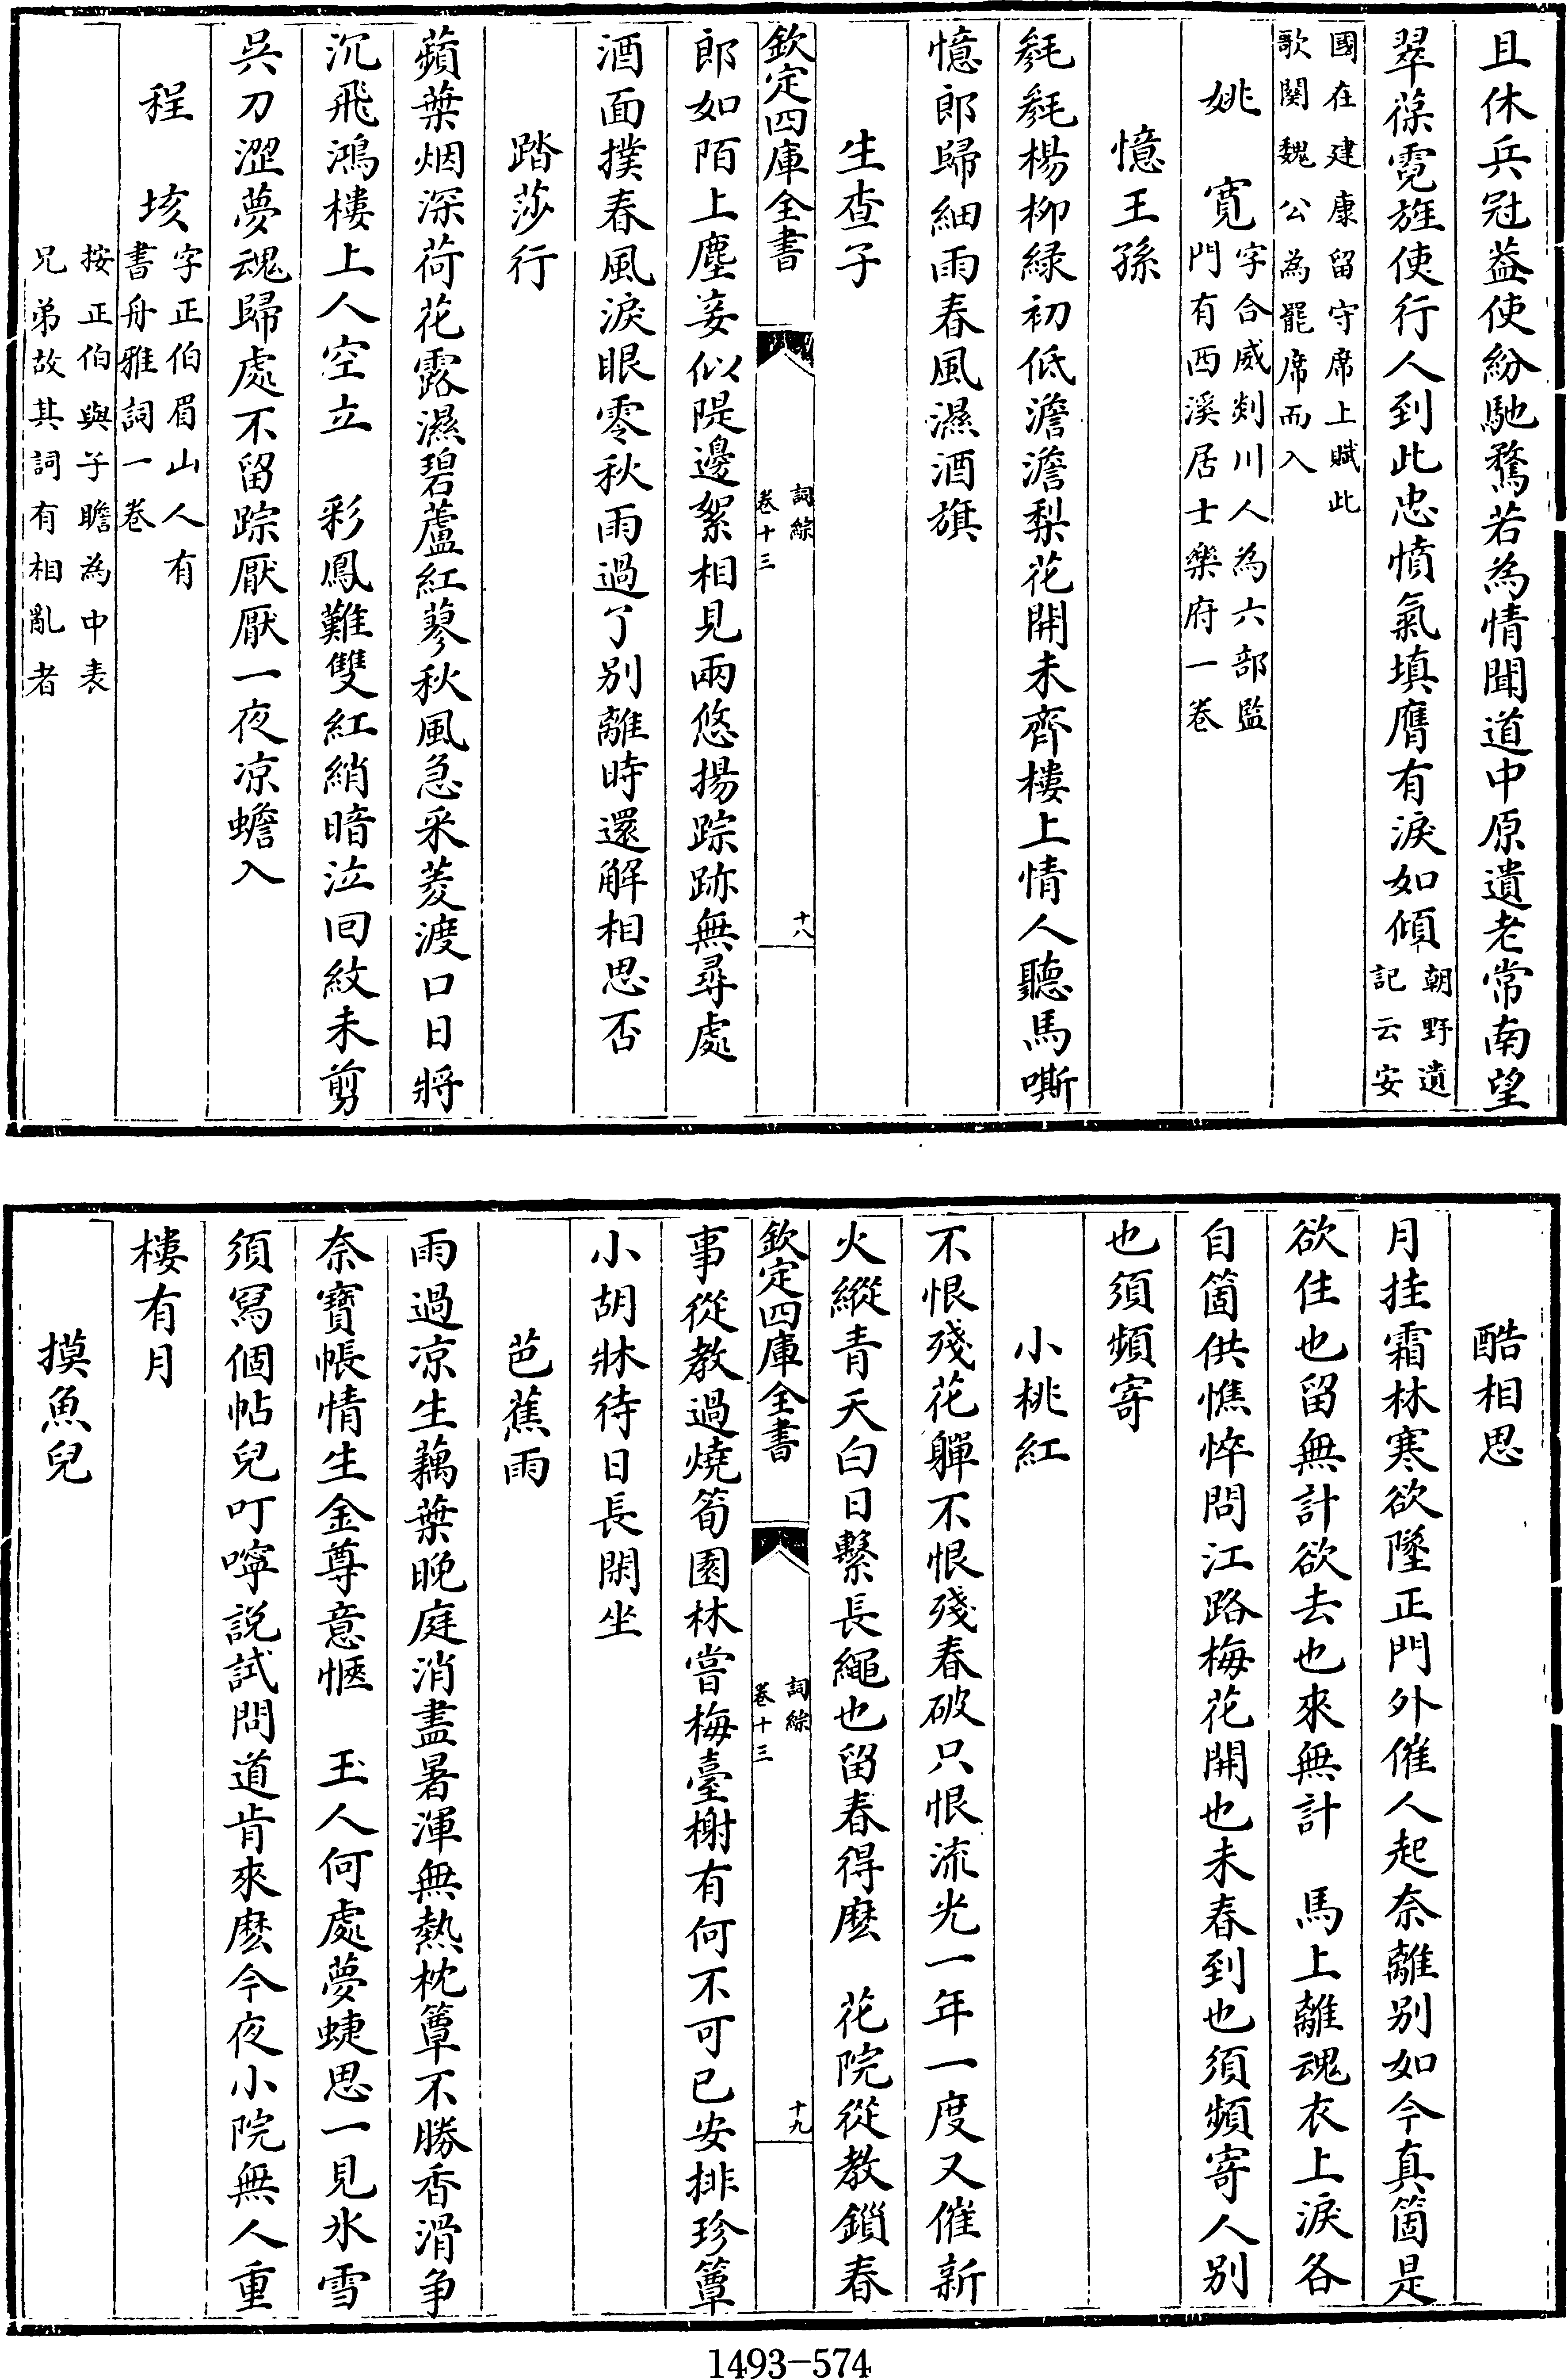 且休兵冠葢使紛馳騖若為情聞道中原遺老常南望
翠葆霓旌使行人到此忠憤氣填膺有淚如傾朝野遺記云安
國在建康留守席上賦此歌闋魏公為罷席而入
姚寛字合威剡川人為六部監門有西溪居士樂府一卷
憶王孫
毿毿楊柳緑初低澹澹梨花開未齊樓上情人聽馬嘶
憶郎歸細雨春風濕酒旗
生查子
欽定四庫全書 詞綜卷十三 十八
郎如陌上塵妾似隄邊絮相見兩悠揚踪跡無尋處
酒面撲春風淚眼零秋雨過了别離時還解相思否
踏莎行
蘋葉烟深荷花露濕碧蘆紅蓼秋風急采菱渡口日將
沉飛鴻樓上人空立 彩鳳難雙紅綃暗泣回紋未剪
呉刀澀夢魂歸處不留踪厭厭一夜凉蟾入
程垓字正伯眉山人有書舟雅詞一卷
按正伯與子瞻為中表兄弟故其詞有相亂者
酷相思
月挂霜林寒欲墜正門外催人起奈離别如今真箇是
欲住也留無計欲去也來無計 馬上離魂衣上淚各
自箇供憔悴問江路梅花開也未春到也須頻寄人别
也須頻寄
小桃紅
不恨殘花嚲不恨殘春破只恨流光一年一度又催新
火縱青天白日繫長繩也留春得麽 花院從教鎖春
欽定四庫全書 詞綜卷十三 十九
事從教過燒筍園林嘗梅臺榭有何不可已安排珍簟
小胡牀待日長閑坐
芭蕉雨
雨過凉生藕葉晚庭消盡暑渾無熱枕簟不勝香滑争
奈寶帳情生金尊意愜 玉人何處夢蜨思一見氷雪
須冩個帖兒叮嚀説試問道肯來麽今夜小院無人重
樓有月
摸魚兒
1493-574